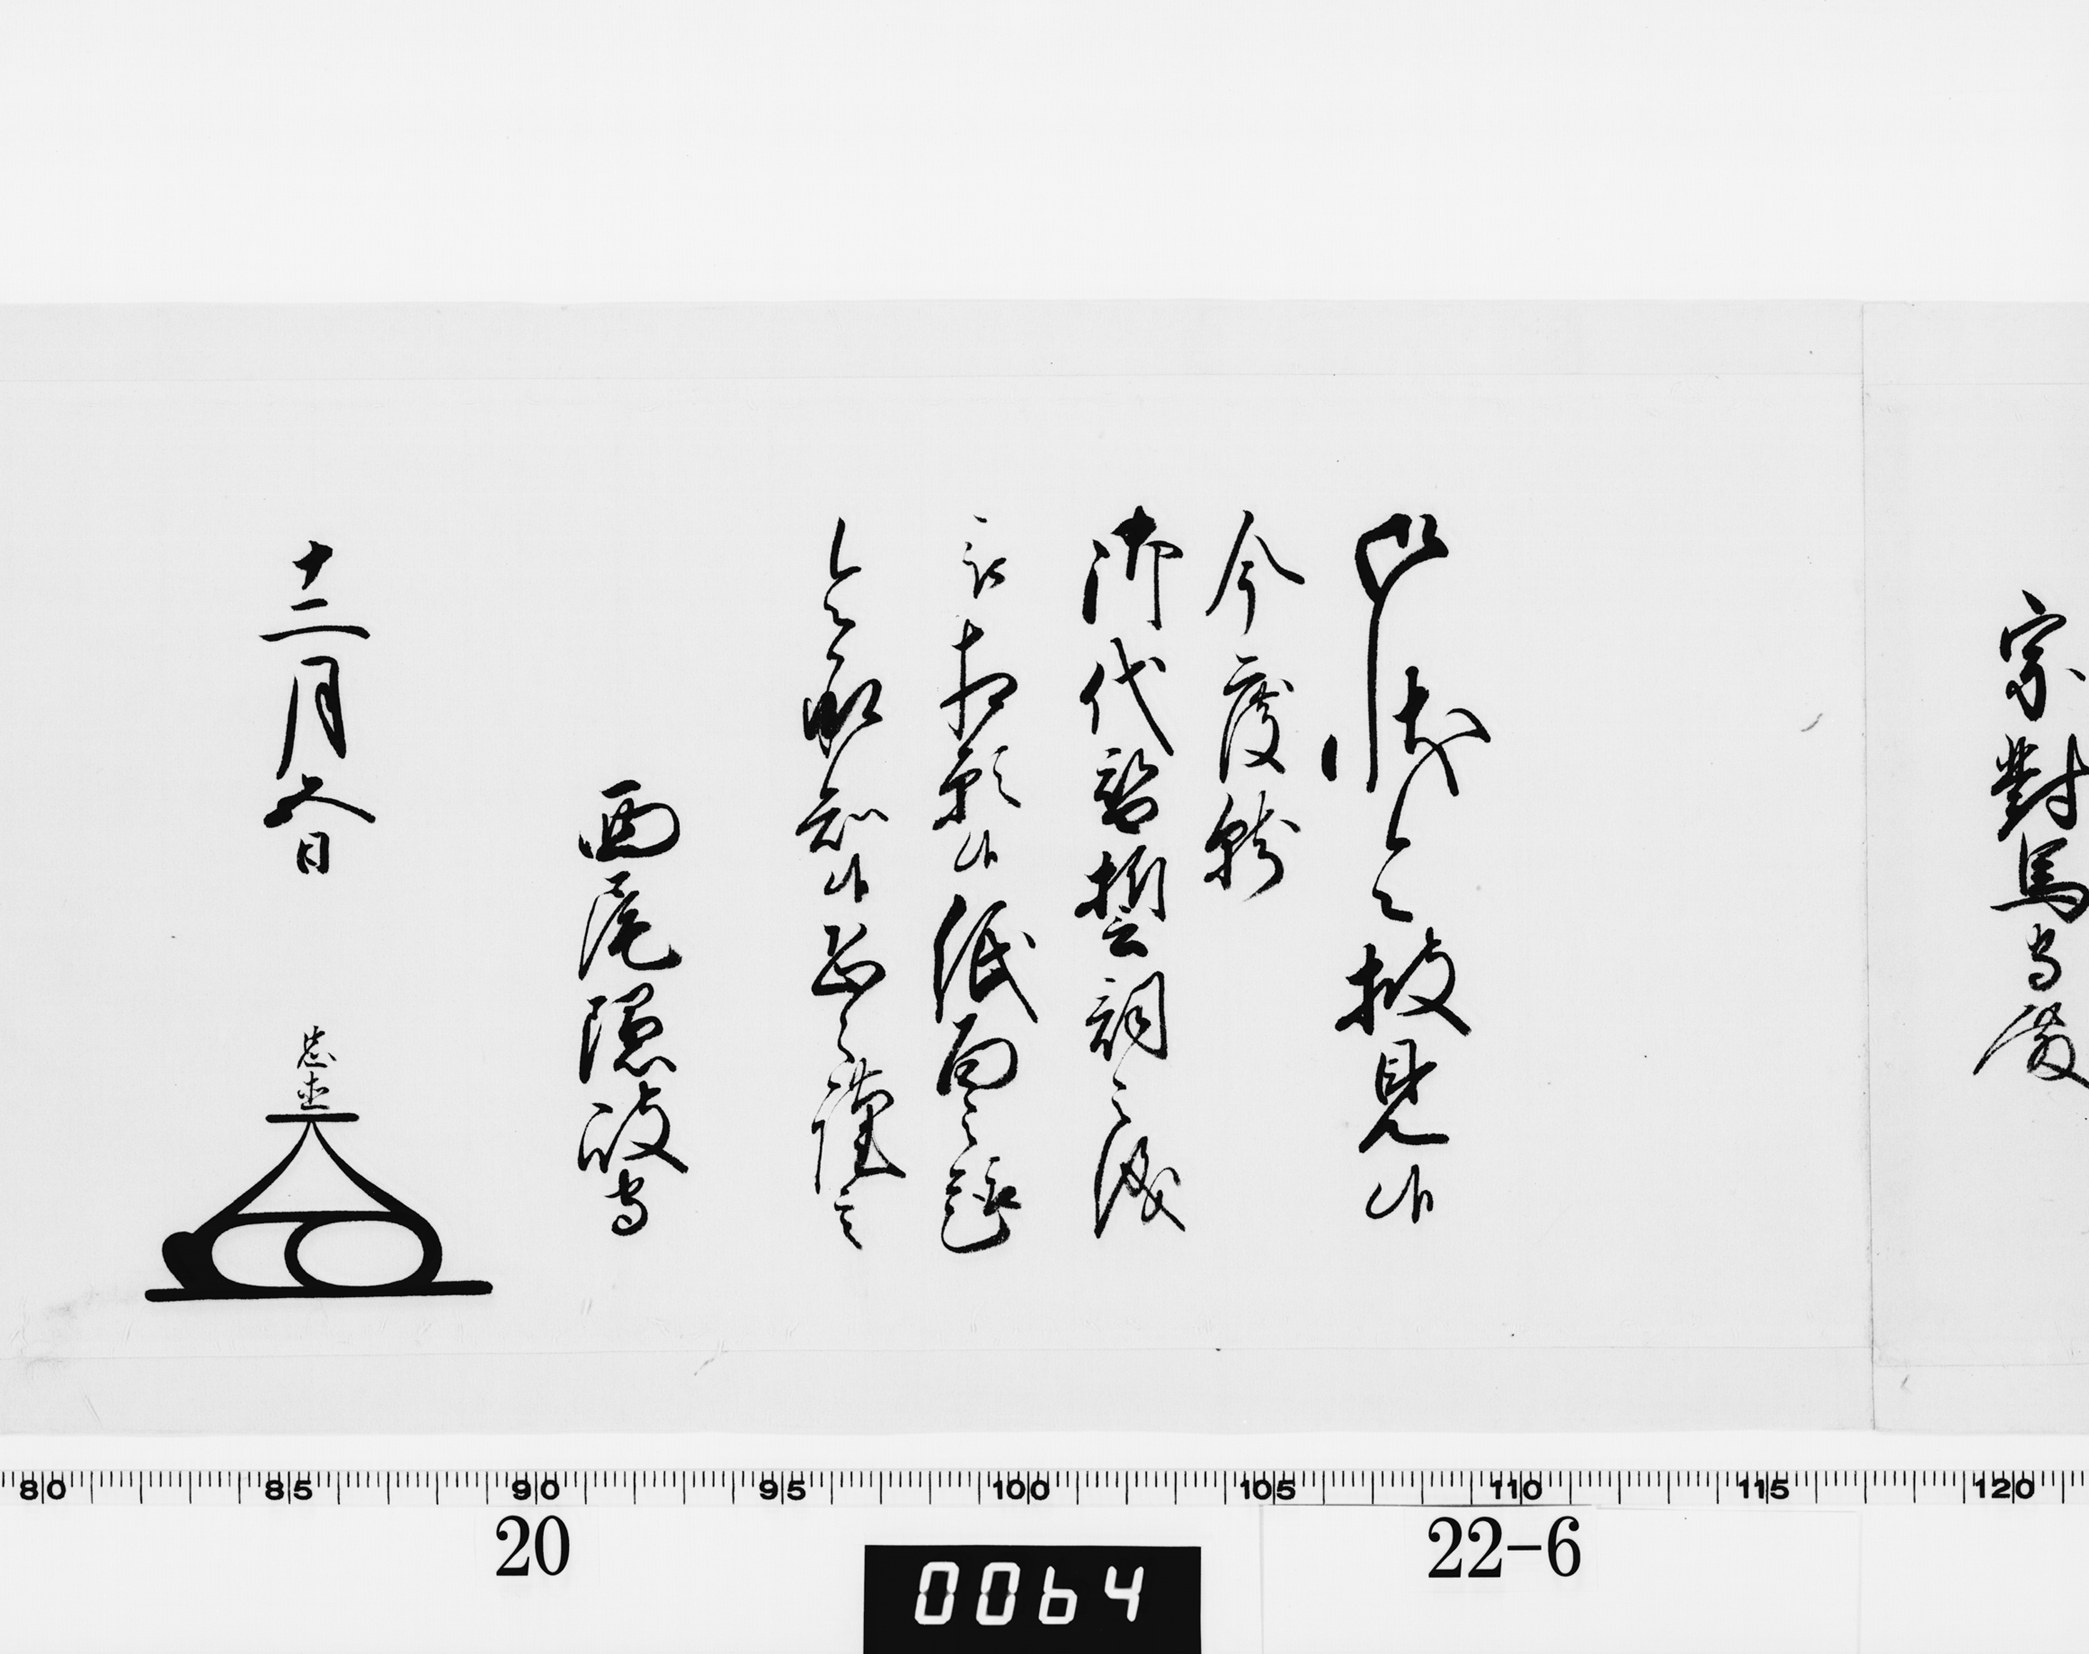 宗對馬守殿
御状令披見候
今度就
御代替誓詞之儀
被相願候紙面之趣
令承知候恐々謹言
西尾隠岐守
十二月六日
忠尚
80 85 90 95 100 105 110 115 120
20
22-6
0064